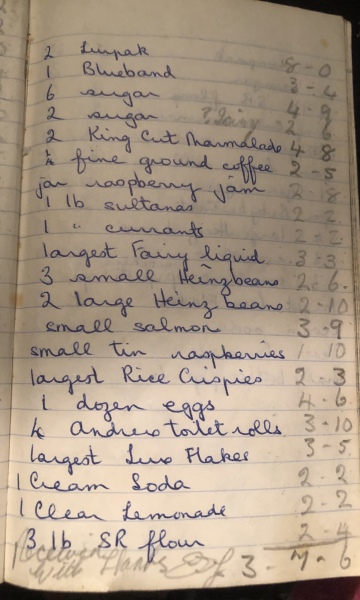 2 Lurpak 8-0
1 Blueband 3-4
6 sugar 4-9
2 sugar 2 6
2 King Cut Marmalade 4-8
¼ fine ground coffee 2-5
jar raspberry jam 2-8
1 lb sultanas 2-2
1 " currants 2-2
largest Fairy liquid 3-3
3 small Heinz beans 2-6
2 large Heinz beans 2-10
small salmon 3-9
small tin raspberries 1-10
largest Rice Crispies 2-3
1 dozen eggs 4-6
4 Andrex toilet rolls 3-10
largest Lux Flakes 3-5
1 Cream Soda 2-2
1 Clear Lemonade 2-2
3 lb SR flour 2-4
Received
With Thanks 3-7-6